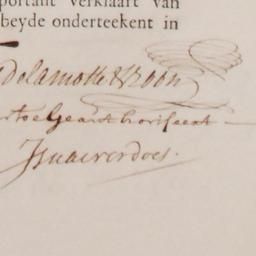 portant verklaart van
beyde onderteekent in
Delamotte & Zoon
toe Geauthoriseert